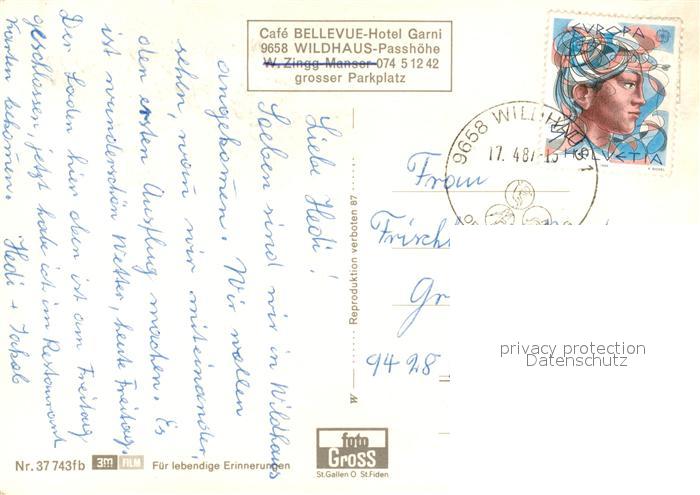 Café BELLEVUE-Hotel Garni
9658 WILDHAUS-Passhöhe
W. Zingg Manser 074 5 12 42
grosser Parkplatz
EUROPA
HELVETIA
9658 WILDHAUS 1
17. 4.87-15
Liebe Hedi!
Soeben sind wir in Wildhaus
angekommen. Wir wollen
sehen, wann wir miteinander
den ersten Ausflug machen. Es
ist wunderschön Wetter, heute Freitag.
Der Laden hier oben ist am Freitag
geschlossen, jetzt habe ich im Restaurant
Karten bekommen.
Hedi + Jakob
Frau
Frisch
Gr
9428
W — Reproduktion verboten 87
privacy protection
Datenschutz
Nr. 37 743fb 3M FILM Für lebendige Erinnerungen
foto
GROSS
St.Gallen O St.Fiden